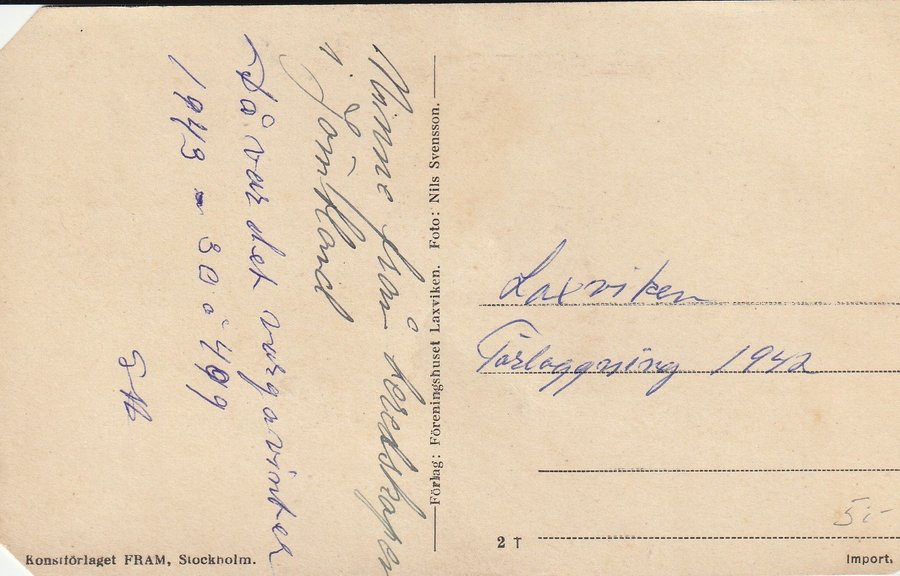 Minne från beredskapen
i Jämtland
Då var det vargavinter
1943 - 30 à 40
Förlag: Föreningshuset Laxviken. Foto: Nils Svensson.
Laxviken
Förläggning 1942
5:-
2 †
Konstförlaget FRAM, Stockholm.
Import.